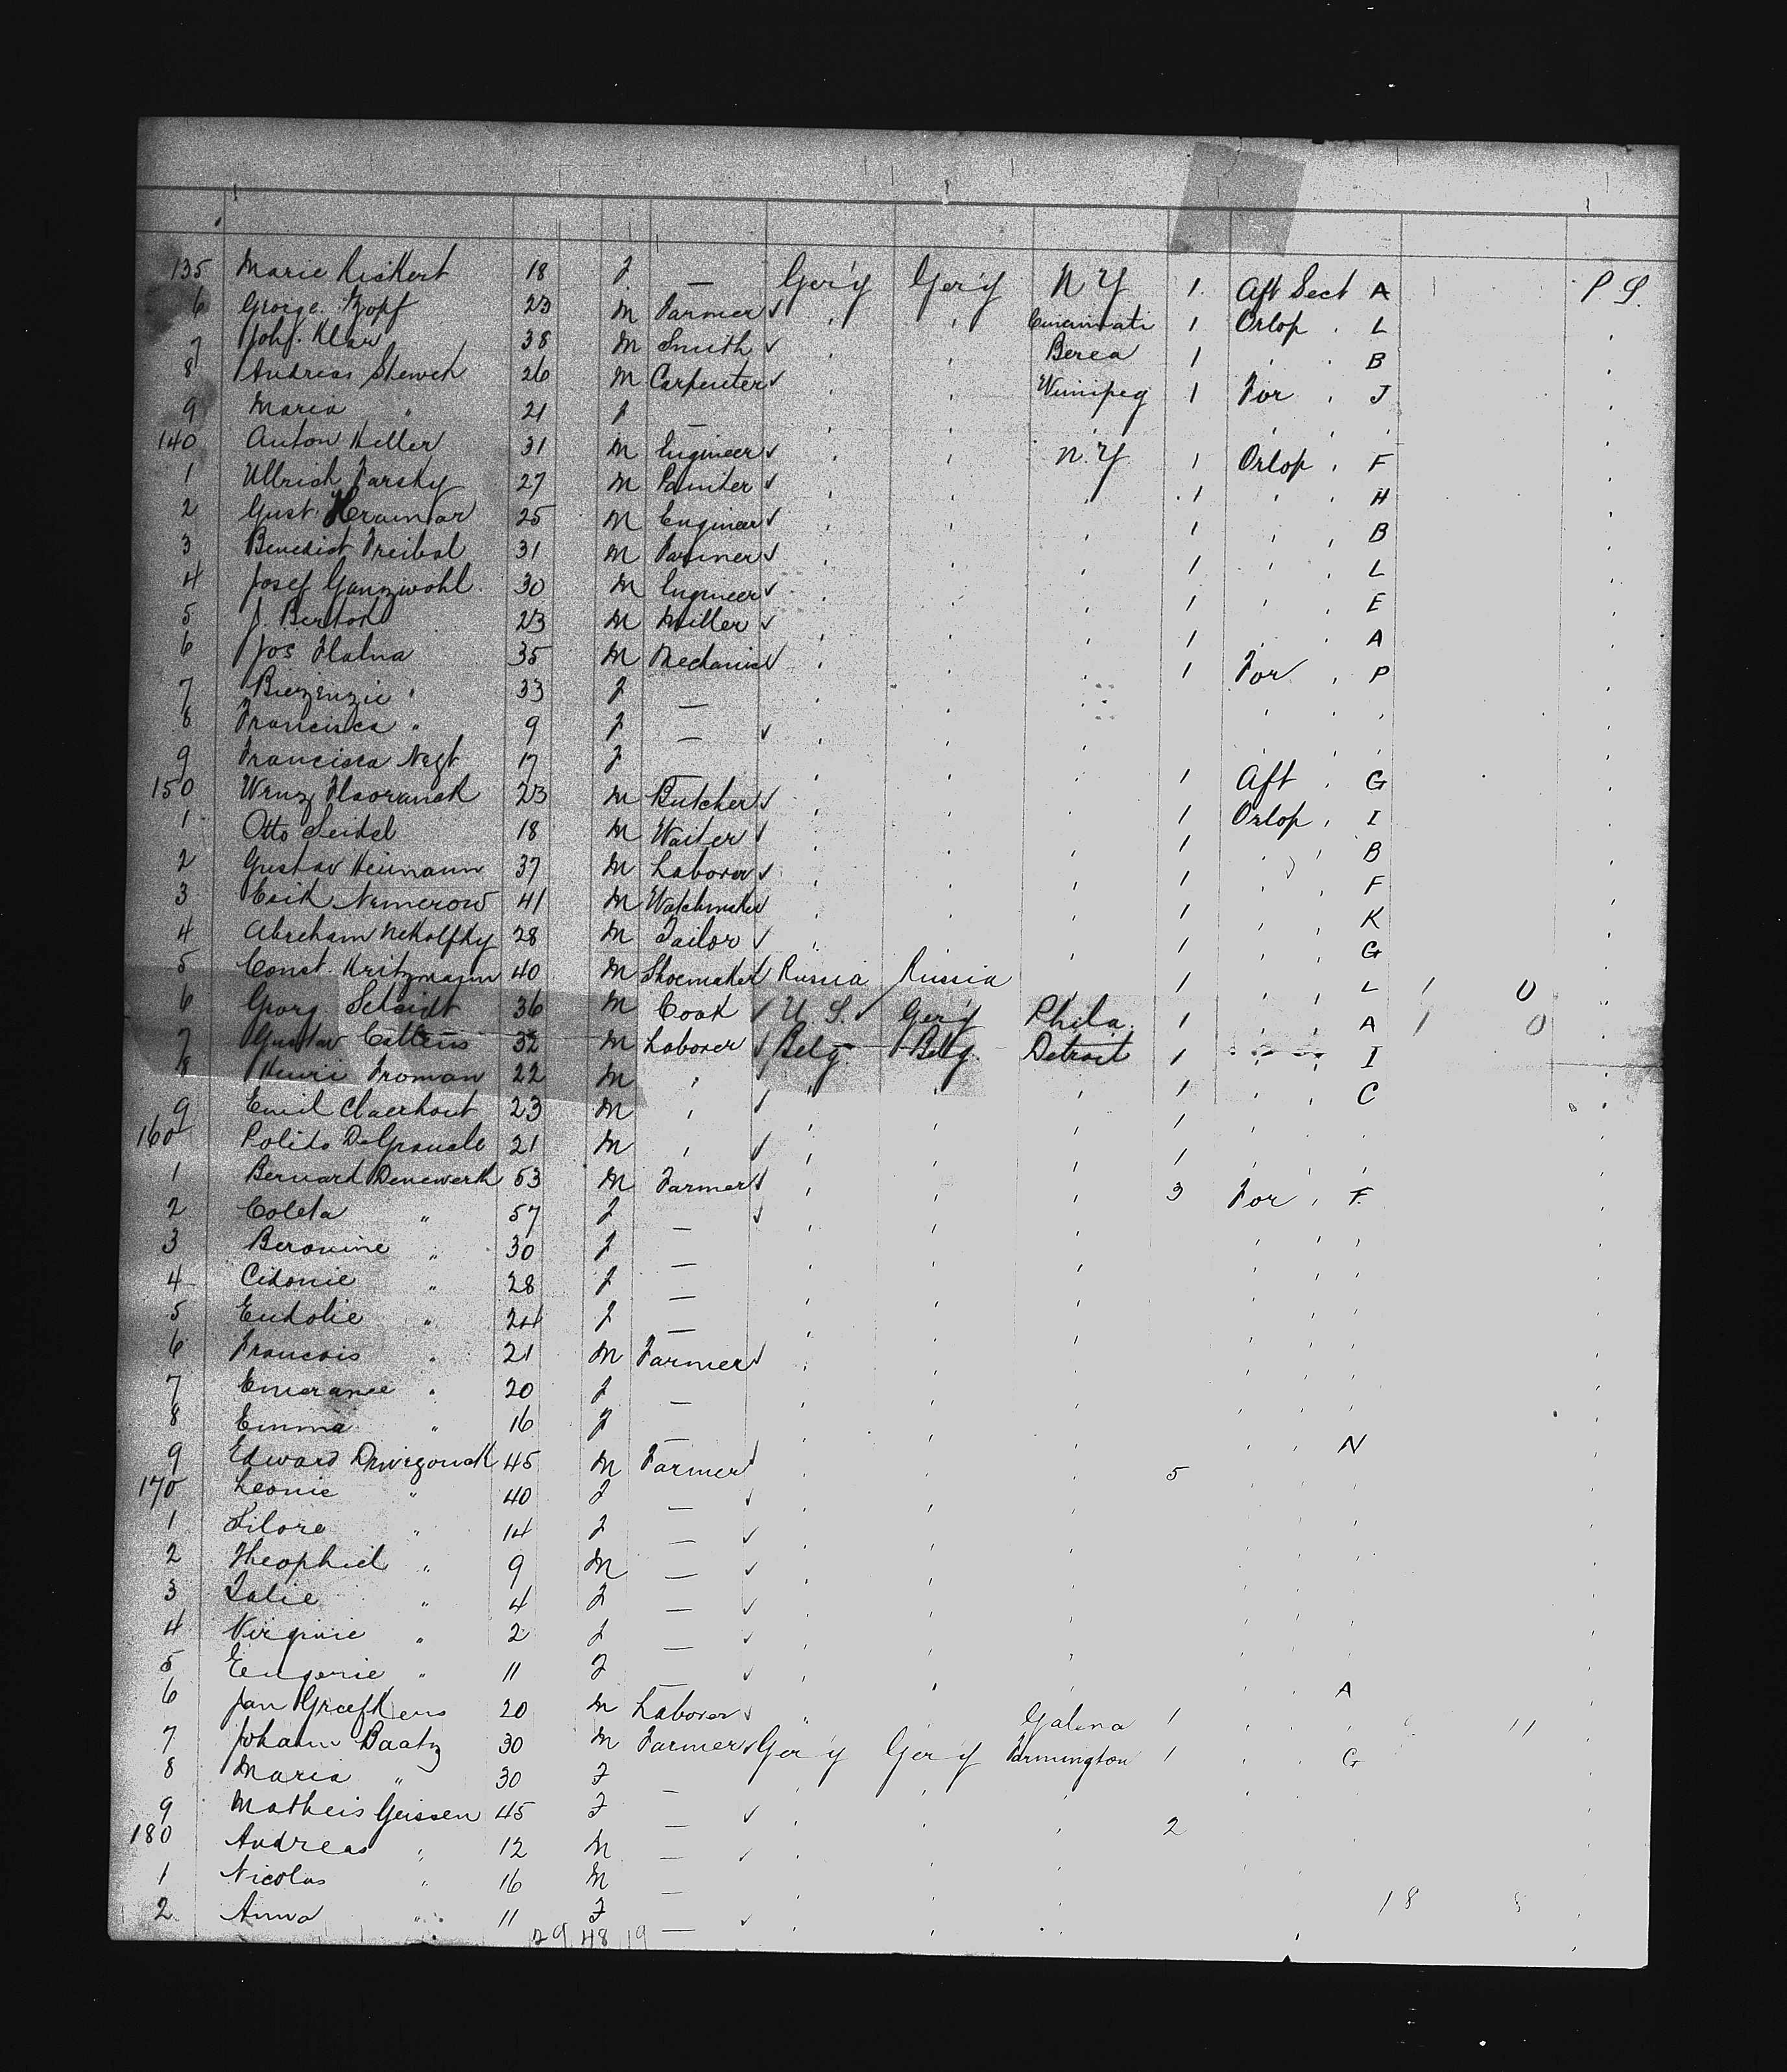 135 Marie Kickert 18 f — Ger'y Ger'y N Y 1 Aft Sect A P S.
6 George Kopf 23 M Farmer ✓ ' ' Cincinnati 1 Orlop ' L '
7 Johs. Klar 38 M Smith ✓ ' ' Berea 1 ' ' B '
8 Andreas Stewch 26 M Carpenter ✓ ' ' Winnipeg 1 For ' J '
9 Maria " 21 f — ' ' ' ' ' ' '
140 Anton Keller 31 M Engineer ✓ ' ' N. Y. 1 Orlop ' F '
1 Ullrich Farsky 27 M Painter ✓ ' ' ' 1 ' ' H '
2 Gust. 25 M Engineer ✓ ' ' ' 1 ' ' B '
3 Benedict Freibol 31 M Farmer ✓ ' ' ' 1 ' ' L '
4 Josef Ganzwohl 30 M Engineer ✓ ' ' ' 1 ' ' E '
5 J. Bertok 23 M Miller ✓ ' ' ' 1 ' ' A '
6 Jos Halna 35 M Mechanic ✓ ' ' ' 1 For ' P '
7 " 33 f — ' ' ' ' ' ' '
8 Francisca " 9 f — ✓ ' ' ' ' ' ' '
9 Francisca 17 f — ' ' ' 1 Aft ' G '
150 Wenz 23 M Butcher ✓ ' ' ' 1 Orlop ' I '
1 Otto Seidel 18 M Waiter ✓ ' ' ' 1 ' ' B '
2 Gustav Heimann 37 M Laborer ✓ ' ' ' 1 ' ' F '
3 Nemerow 41 M Watchmaker ✓ ' ' ' 1 ' ' K '
4 Abreham Nekolfky 28 M Tailor ✓ ' ' ' 1 ' ' G '
5 Const. Kritzmann 40 M Shoemaker Russia Russia ' 1 ' ' L 1 0 "
6 Georg Scheidt 36 M Cook ✓ U. S. Ger'y Phila. 1 ' ' A 1 0 '
7 Gustav 32 M Laborer ✓ Belg. Belg. Detroit 1 ' ' I '
8 Henri Froman 22 M ' ✓ " ' ' 1 ' ' C '
9 Emil Claerhout 23 M ' ' ' ' 1 ' ' ' '
160 Polido 21 M ' ✓ ' ' ' 1 ' ' ' '
1 Bernard Denewerk 53 M Farmer ✓ ' ' ' 3 For ' F. '
2 Coleta " 57 f — ✓ ' ' ' ' ' ' '
3 Beronine " 30 f — ' ' ' ' ' ' '
4 Cidonie " 28 f — ' ' ' ' ' ' '
5 Eudolie " 24 f — ' ' ' ' ' ' '
6 Francois " 21 M Farmer ✓ ' ' ' ' ' ' '
7 Emerance " 20 f — ' ' ' ' ' ' '
8 Emma " 16 f — ' ' ' ' ' N '
9 Edward 45 M Farmer ✓ ' ' ' 5 ' ' ' '
170 Leonie " 40 f — ✓ ' ' ' ' ' ' '
1 Silore " 14 f — ✓ ' ' ' ' ' ' '
2 Theophiel " 9 M — ✓ ' ' ' ' ' ' '
3 Zalie " 4 f — ✓ ' ' ' ' ' ' '
4 Virginie " 2 f — ✓ ' ' ' ' ' ' '
5 Eugenie " 11 f — ✓ ' ' ' ' ' A '
6 Jan Graefkens 20 M Laborer ✓ " ' Galena 1 ' ' ' 11 '
7 Johann Baatz 30 M Farmer ✓ Ger'y Ger'y Farmington 1 ' ' G '
8 Maria " 30 f — ' ' ' ' ' ' '
9 Matheis Geissen 45 f — ✓ ' ' ' 2 ' ' ' '
180 Andreas " 12 M — ✓ ' ' '
1 Nicolas " 16 M — ' ' '
2 Anna " 11 f — ✓ ' ' ' 18 '
29 48 19